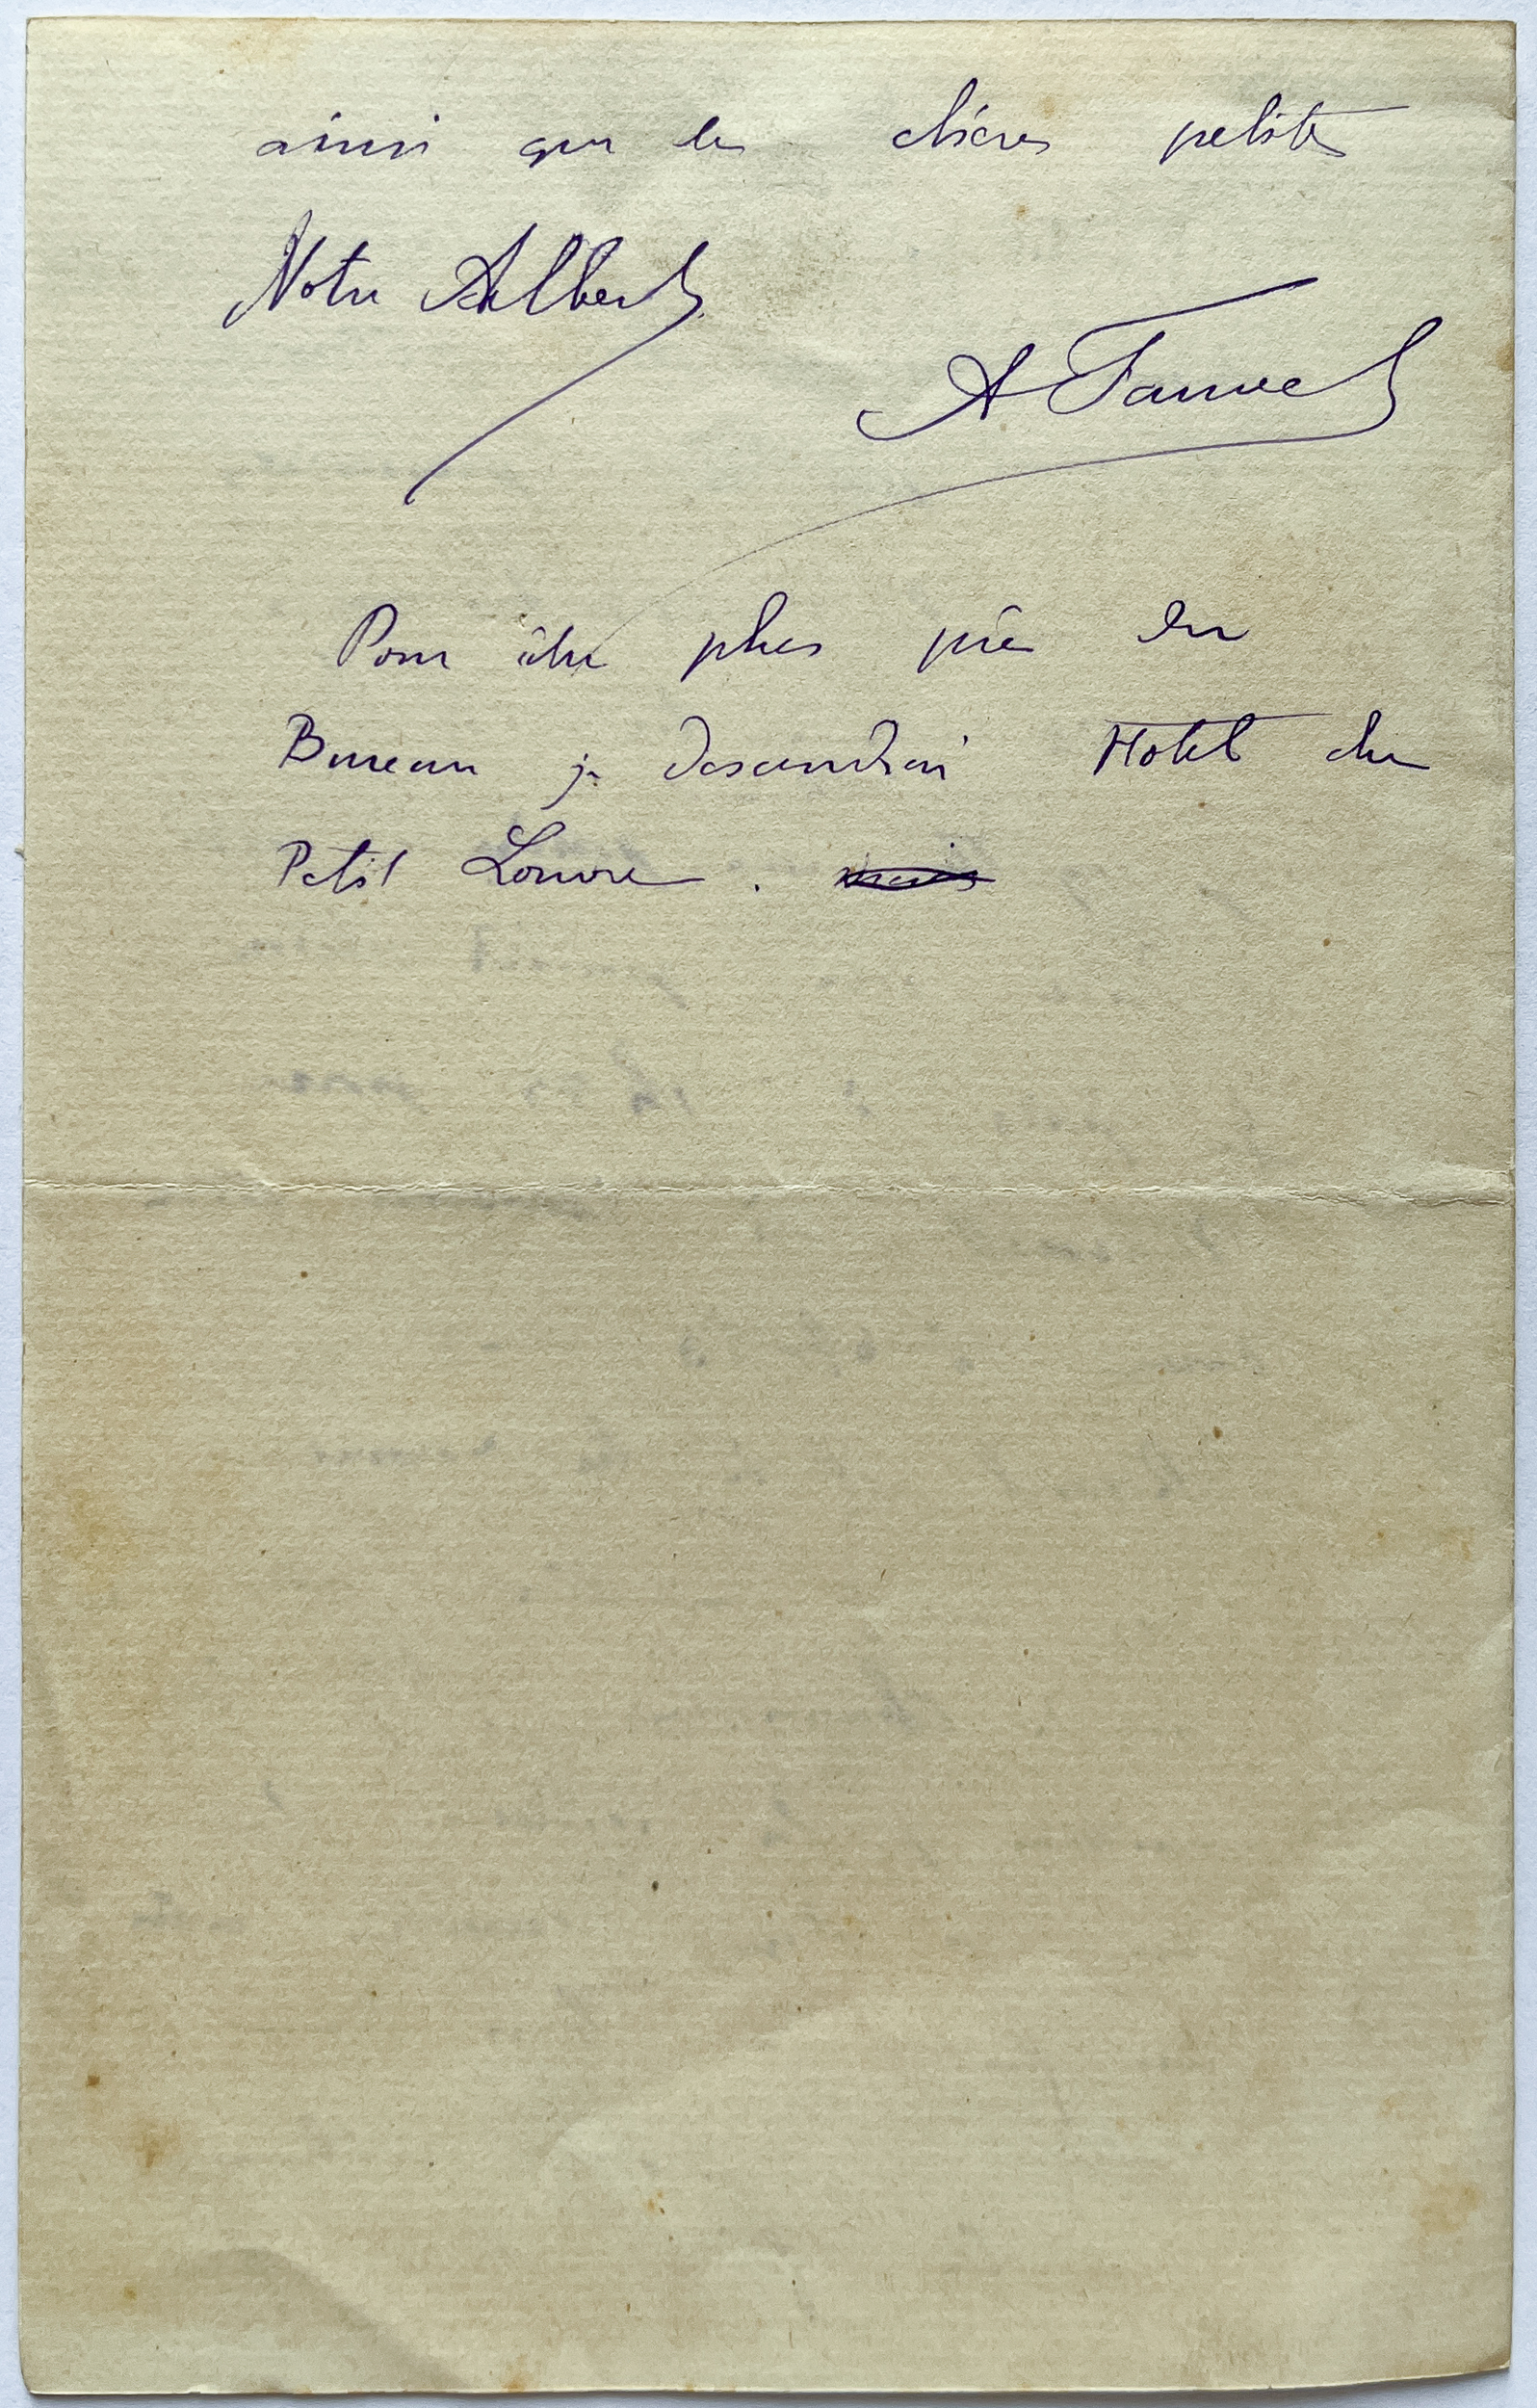 ainsi que les chères petites
Votre Albert
A Fauvel
Pour être plus près du
Bureau je descendrai Hotel du
Petit Louvre.